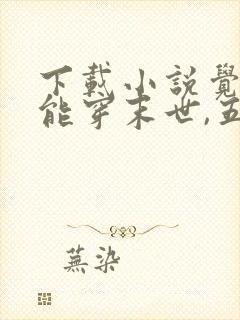 下載小說覺
能穿末世,五
蕪染